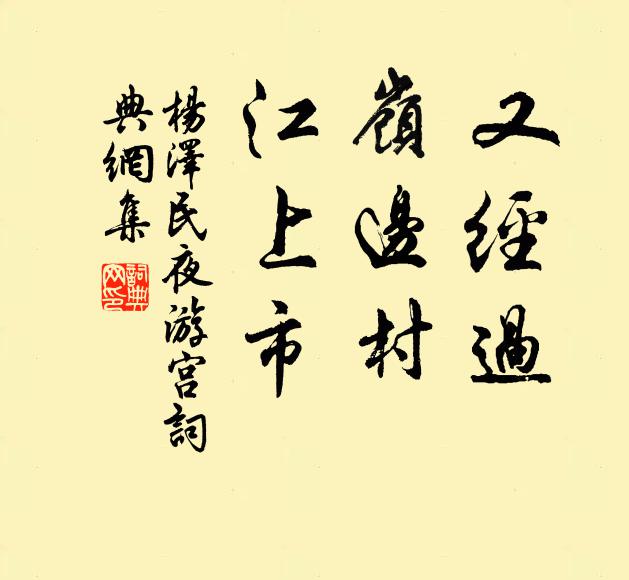 又經過
嶺邊村
江上市
楊澤民夜游宮詞
典網集
詞典
网印